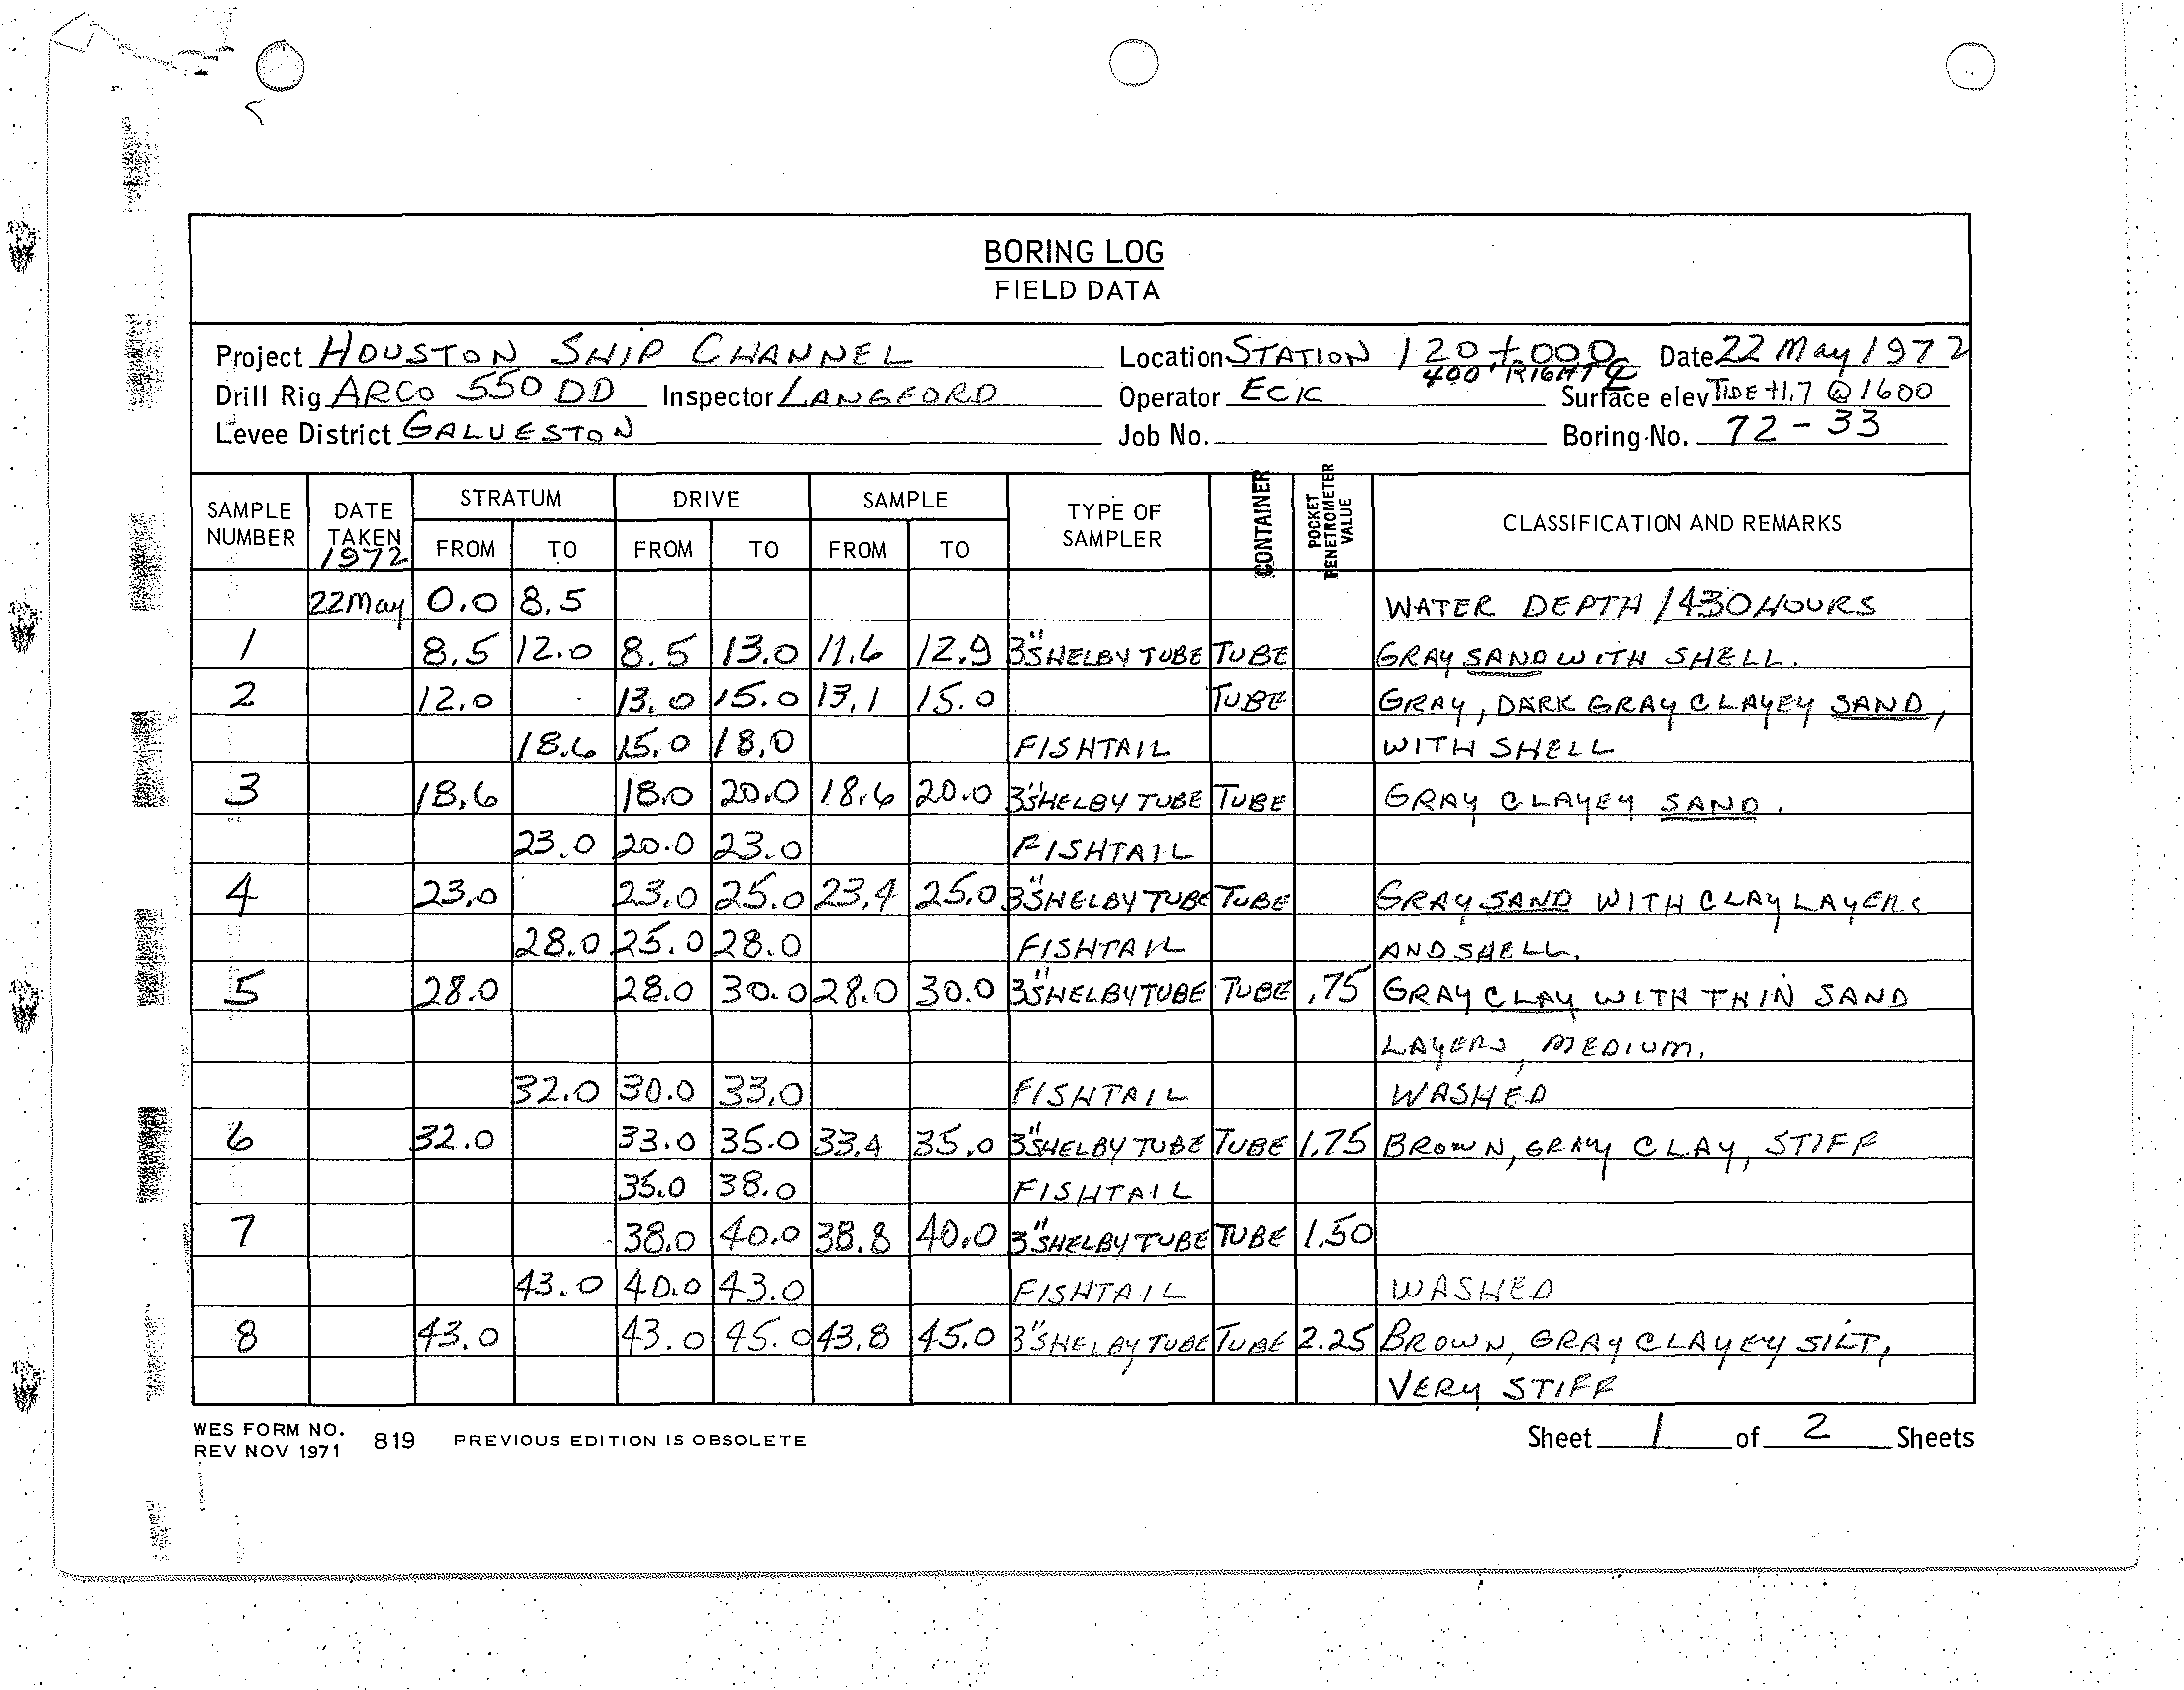 BORING LOG
FIELD DATA
Project HOUSTON SHIP CHANNEL Location STATION 120+000 Date 22 May 1972
400' RIGHT ℄
Drill Rig ARCO 550 DD Inspector LANGFORD Operator ECK Surface elev TIDE +1.7 @ 1600
Levee District GALVESTON Job No. Boring No. 72-33
SAMPLE NUMBER DATE TAKEN 1972 STRATUM FROM TO DRIVE FROM TO SAMPLE FROM TO TYPE OF SAMPLER CONTAINER POCKET PENETROMETER VALUE CLASSIFICATION AND REMARKS
22 May 0.0 8.5 WATER DEPTH 1430 HOURS
1 8.5 12.0 8.5 13.0 11.6 12.9 3" SHELBY TUBE TUBE GRAY SAND WITH SHELL.
2 12.0 13.0 15.0 13.1 15.0 TUBE GRAY, DARK GRAY CLAYEY SAND,
18.6 15.0 18.0 FISHTAIL WITH SHELL
3 18.6 18.0 20.0 18.6 20.0 3" SHELBY TUBE TUBE GRAY CLAYEY SAND.
23.0 20.0 23.0 FISHTAIL
4 23.0 23.0 25.0 23.4 25.0 3" SHELBY TUBE TUBE GRAY SAND WITH CLAY LAYERS
28.0 25.0 28.0 FISHTAIL AND SHELL.
5 28.0 28.0 30.0 28.0 30.0 3" SHELBY TUBE TUBE .75 GRAY CLAY WITH THIN SAND
LAYERS, MEDIUM.
32.0 30.0 33.0 FISHTAIL WASHED
6 32.0 33.0 35.0 33.4 35.0 3" SHELBY TUBE TUBE 1.75 BROWN, GRAY CLAY, STIFF
35.0 38.0 FISHTAIL
7 38.0 40.0 38.8 40.0 3" SHELBY TUBE TUBE 1.50
43.0 40.0 43.0 FISHTAIL WASHED
8 43.0 43.0 45.0 43.8 45.0 3" SHELBY TUBE TUBE 2.25 BROWN, GRAY CLAYEY SILT,
VERY STIFF
WES FORM NO. 819 PREVIOUS EDITION IS OBSOLETE
REV NOV 1971
Sheet 1 of 2 Sheets